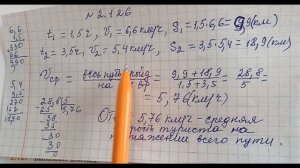 № 2.126
t₁ = 1,5ч, v₁ = 6,6 км/ч, S₁ = 1,5·6,6 = 9,9 (км)
t₂ = 3,5ч, v₂ = 5,4 км/ч, S₂ = 3,5·5,4 = 18,9 (км)
Vср = весь путь на вр = 9,9 + 18,9 / 1,5 + 3,5 = 28,8 / 5 =
= 5,76 (км/ч)
5,76 км/ч – средняя
скорость туриста на
протяжении всего пути.
6,6
1,5
330
66
9,90
5,4
3,5
270
162
18,90
28,8 5
25 5,76
38
35
30